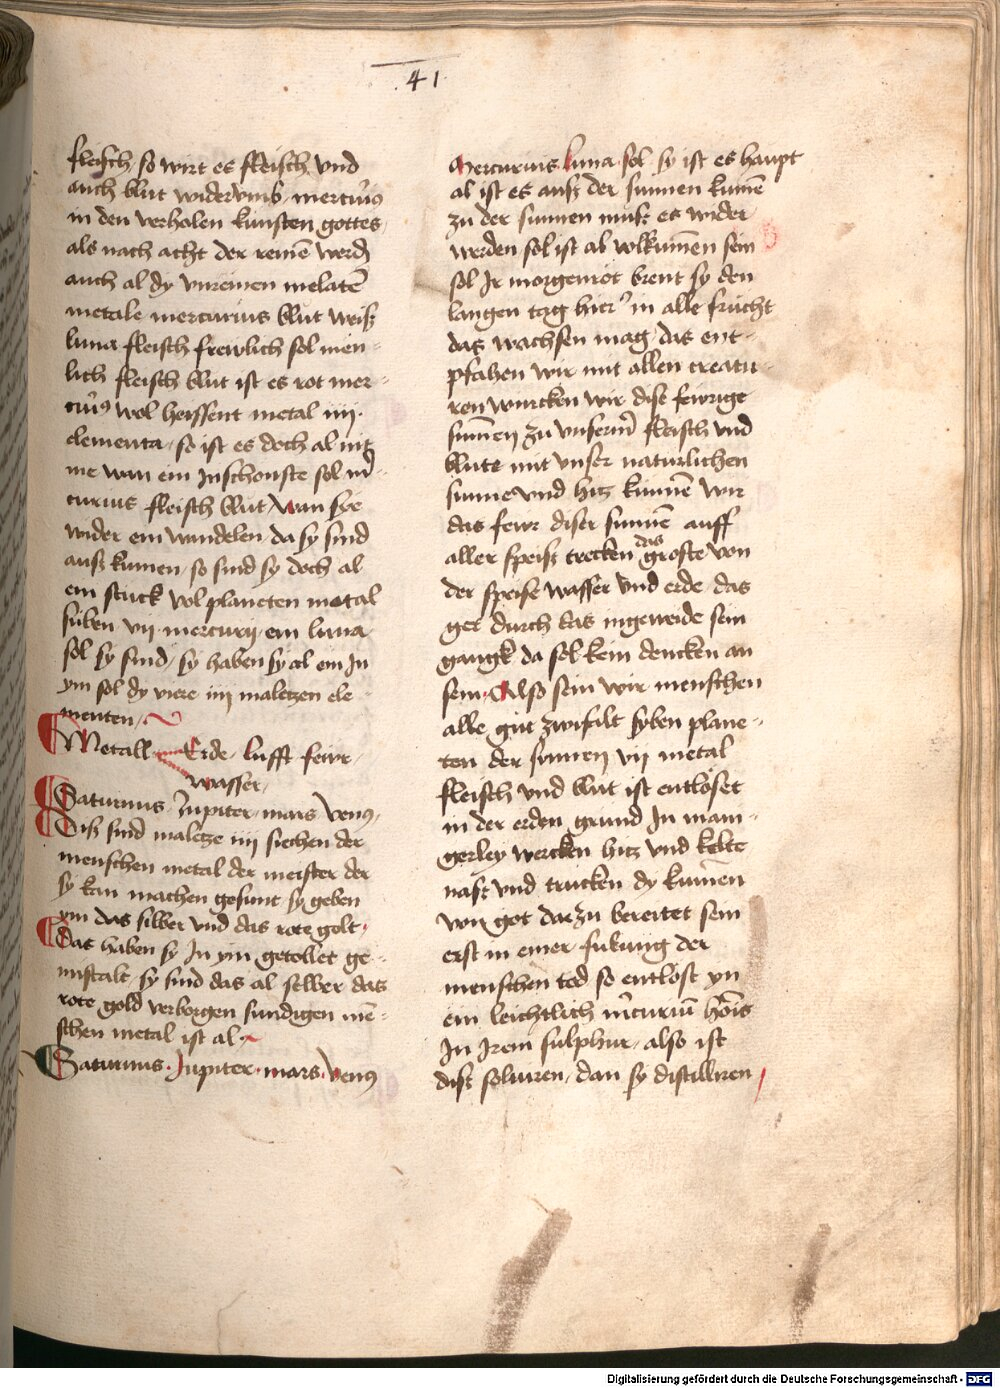 41
fleisch so wirt es fleisch vnd
auch blut widervmb mercurius
in den verholen kunsten gottes
als nach acht der reinen werd
auch al dy vnreinen melaten
metale mercurius blut weiß
luna fleisch frewlich sol men-
lich fleisch blut ist es rot mer-
wol heissent metal iiij
elementa so ist es doch al nit
me wan ein Inschonste sol mer-
curius fleisch blut wan sye
wider ein wandelen da sy sind
auß kumen so sind sy doch al
ein stuck vol planeten metal
siben vij mercurij ein luna
sol sy sind sy haben sy al ein In
ym sol dy viere iiij maletzen ele-
menten
Metall Erde lufft feiwr
wasser
Saturnus Jupiter mars venus
Diß sind maletze iiij siechen der
menschen metal der meister der
sy kan machen gesunt sy geben
ym das silber vnd das rote golt
Das haben sy In ym ge-
mistalt sy sind das al selber das
rote gold verborgen sundigen men-
schen metal ist al
Saturnus Jupiter mars venus
mercurius luna sol sy ist es haupt
al ist es auß der sunnen kumen
zu der sunnen muß es wider
werden sol ist al volkumen sein
sol Ir morgenrot brent sy den
langen tag hier in alle frucht
das wachsen mag das ent-
pfahen wir mit allen creatu-
ren wurcken wir dise feiwrige
sunnen zu vnserm fleisch vnd
blute mit vnser naturlichen
sunne vnd hitz kunnen wir
das feiwr diser sunnen auff
aller speiß trecken das groste von
der speise wasser vnd erde das
get durch das ingeweide sein
gangk da sol kein dencken an
sein Also sein wir menschen
alle gut zwifalt syben plane-
ten der sunnen vij metal
fleisch vnd blut ist entloset
in der erden grund In man-
gerley wercken hitz vnd kelte
naß vnd trucken dy kumen
von got dar zu bereitet sein
erst in einer fulung der
menschen tod so entlost yn
ein leichtlich
In Irem sulphur also ist
diß soluiren dan sy distilliren
Digitalisierung gefördert durch die Deutsche Forschungsgemeinschaft - DFG